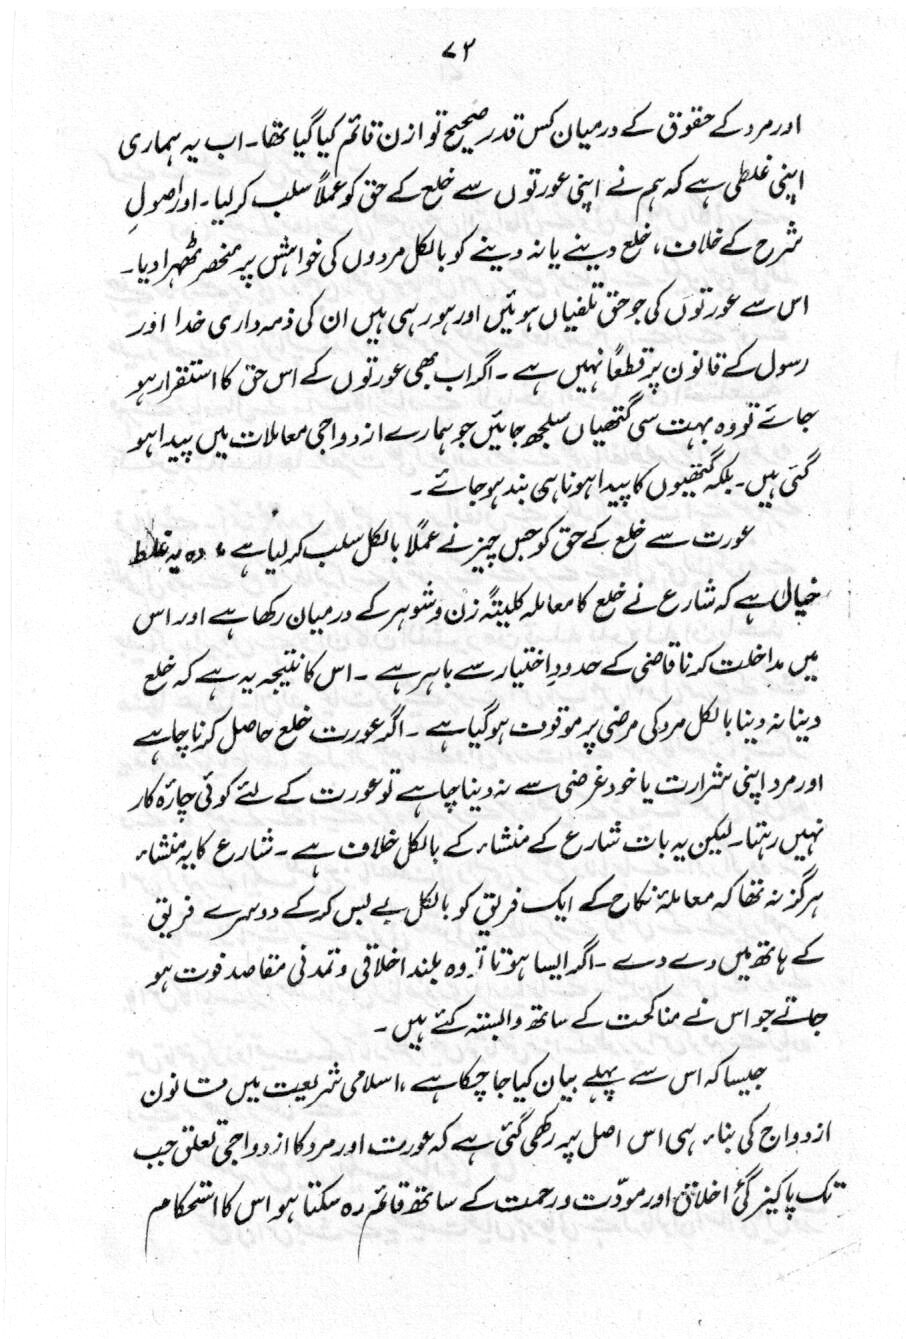 ۷۲
اور مرد کے حقوق کے درمیان کس قدر صحیح توازن قائم کیا گیا تھا۔ اب یہ ہماری
اپنی غلطی ہے کہ ہم نے اپنی عورتوں سے خلع کے حق کو عملاً سلب کر لیا۔ اور اصولِ
شرح کے خلاف، خلع دینے یا نہ دینے کو بالکل مردوں کی خواہش پر منحصر ٹھہرا دیا۔
اس سے عورتوں کی جو حق تلفیاں ہوئیں اور ہو رہی ہیں ان کی ذمہ داری خدا اور
رسول کے قانون پر قطعاً نہیں ہے۔ اگر اب بھی عورتوں کے اس حق کا استقرار ہو
جائے تو وہ بہت سی گتھیاں سلجھ جائیں جو ہمارے ازدواجی معاملات میں پیدا ہو
گئی ہیں۔ بلکہ گتھیوں کا پیدا ہونا ہی بند ہو جائے۔
عورت سے خلع کے حق کو جس چیز نے عملاً بالکل سلب کر لیا ہے، وہ یہ غلط
خیال ہے کہ شارع نے خلع کا معاملہ کلیتہً زن و شوہر کے درمیان رکھا ہے اور اس
میں مداخلت کرنا قاضی کے حدودِ اختیار سے باہر ہے۔ اس کا نتیجہ یہ ہے کہ خلع
دینا نہ دینا بالکل مرد کی مرضی پر موقوف ہو گیا ہے۔ اگر عورت خلع حاصل کرنا چاہے
اور مرد اپنی شرارت یا خود غرضی سے نہ دینا چاہے تو عورت کے لئے کوئی چارۂ کار
نہیں رہتا۔ لیکن یہ بات شارع کے منشاء کے بالکل خلاف ہے۔ شارع کا یہ منشاء
ہرگز نہ تھا کہ معاملۂ نکاح کے ایک فریق کو بالکل بے بس کر کے دوسرے فریق
کے ہاتھ میں دے دے۔ اگر ایسا ہوتا تو وہ بلند اخلاقی و تمدنی مقاصد فوت ہو
جاتے جو اس نے مناکحت کے ساتھ وابستہ کئے ہیں۔
جیسا کہ اس سے پہلے بیان کیا جا چکا ہے، اسلامی شریعت میں قانون
ازدواج کی بناء ہی اس اصل پہ رکھی گئی ہے کہ عورت اور مرد کا ازدواجی تعلق جب
تک پاکیزگیٔ اخلاق اور مودّت و رحمت کے ساتھ قائم رہ سکتا ہو اس کا استحکام